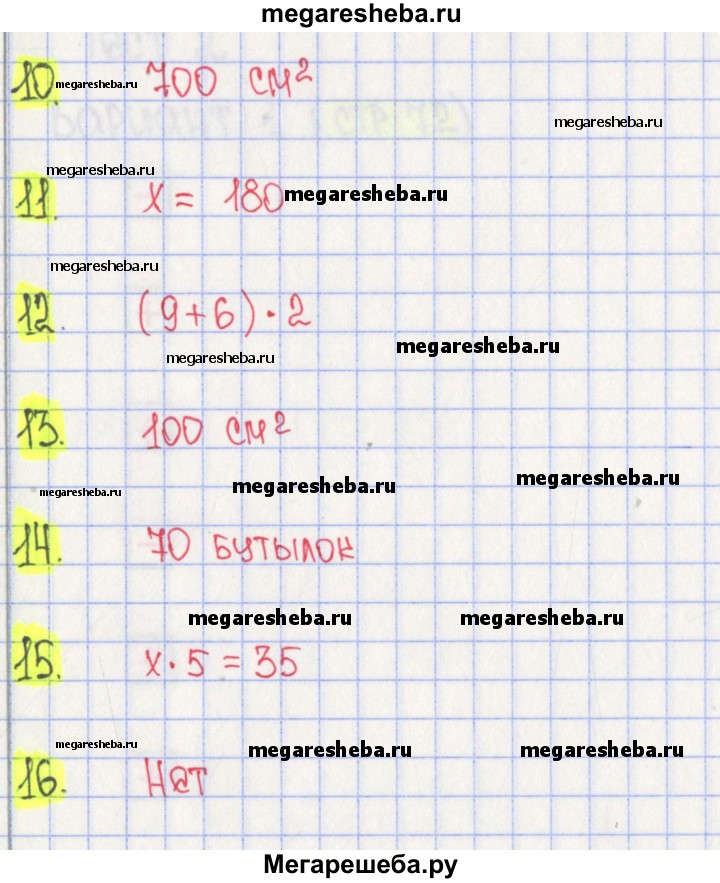 megaresheba.ru
10. megaresheba.ru 700 см²
megaresheba.ru
megaresheba.ru
11. x = 180 megaresheba.ru
megaresheba.ru
12. (9+6)·2
megaresheba.ru megaresheba.ru
13. 100 см²
megaresheba.ru megaresheba.ru megaresheba.ru
14. 70 бутылок
megaresheba.ru megaresheba.ru
15. x·5=35
megaresheba.ru megaresheba.ru megaresheba.ru
16. Нет
Мегарешеба.ру